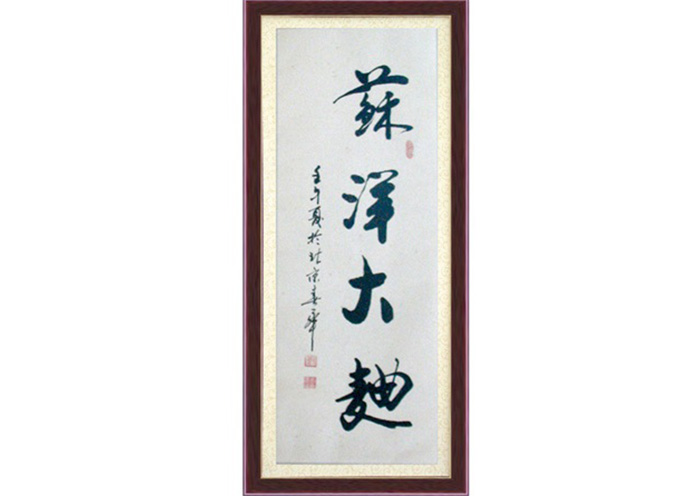 蘇洋大麯
壬午夏於北京春華